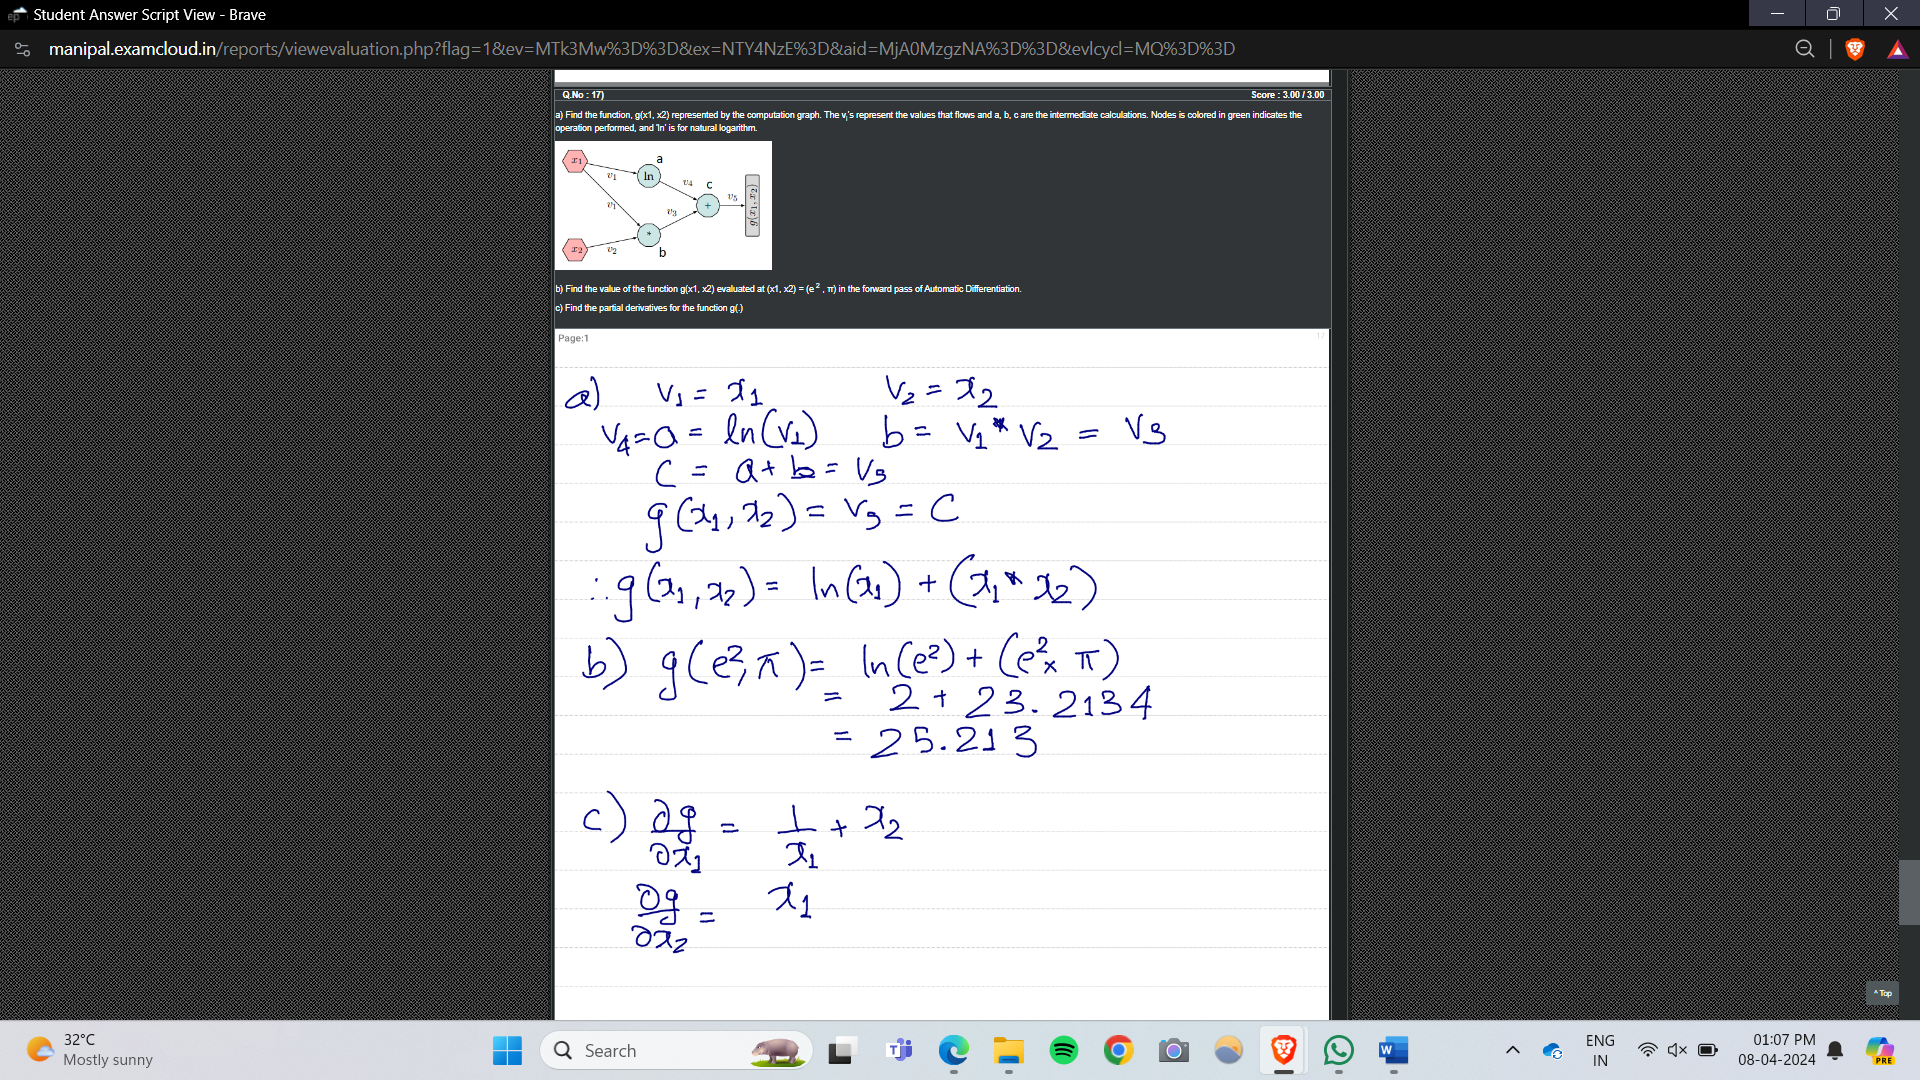 Student Answer Script View - Brave
manipal.examcloud.in/reports/viewevaluation.php?flag=1&ev=MTk3Mw%3D%3D&ex=NTY4NzE%3D&aid=MjA0MzgzNA%3D%3D&evlcycl=MQ%3D%3D
Q.No : 17) Score : 3.00 / 3.00
a) Find the function, g(x1, x2) represented by the computation graph. The vi's represent the values that flows and a, b, c are the intermediate calculations. Nodes is colored in green indicates the
operation performed, and 'ln' is for natural logarithm.
x1 a
v1 ln
v4 c
v5
v1 v3 + g(x1, x2)
*
x2 v2 b
b) Find the value of the function g(x1, x2) evaluated at (x1, x2) = (e², π) in the forward pass of Automatic Differentiation.
c) Find the partial derivatives for the function g(.)
Page:1 17
a) v1 = x1 v2 = x2
v4 = a = ln(v1) b = v1 * v2 = v3
c = a + b = v5
g(x1, x2) = v5 = c
∴ g(x1, x2) = ln(x1) + (x1 * x2)
b) g(e², π) = ln(e²) + (e² × π)
= 2 + 23.2134
= 25.213
c) ∂g/∂x1 = 1/x1 + x2
∂g/∂x2 = x1
^ Top
32°C
Mostly sunny
Search
ENG
IN
01:07 PM
08-04-2024
PRE